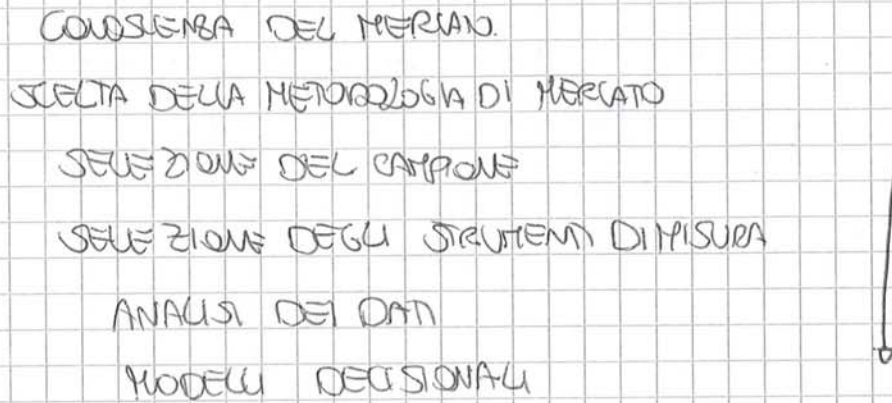 CONOSCENZA DEL MERCATO.
SCELTA DELLA METODOLOGIA DI MERCATO
SELEZIONE DEL CAMPIONE
SELEZIONE DEGLI STRUMENTI DI MISURA
ANALISI DEI DATI
MODELLI DECISIONALI